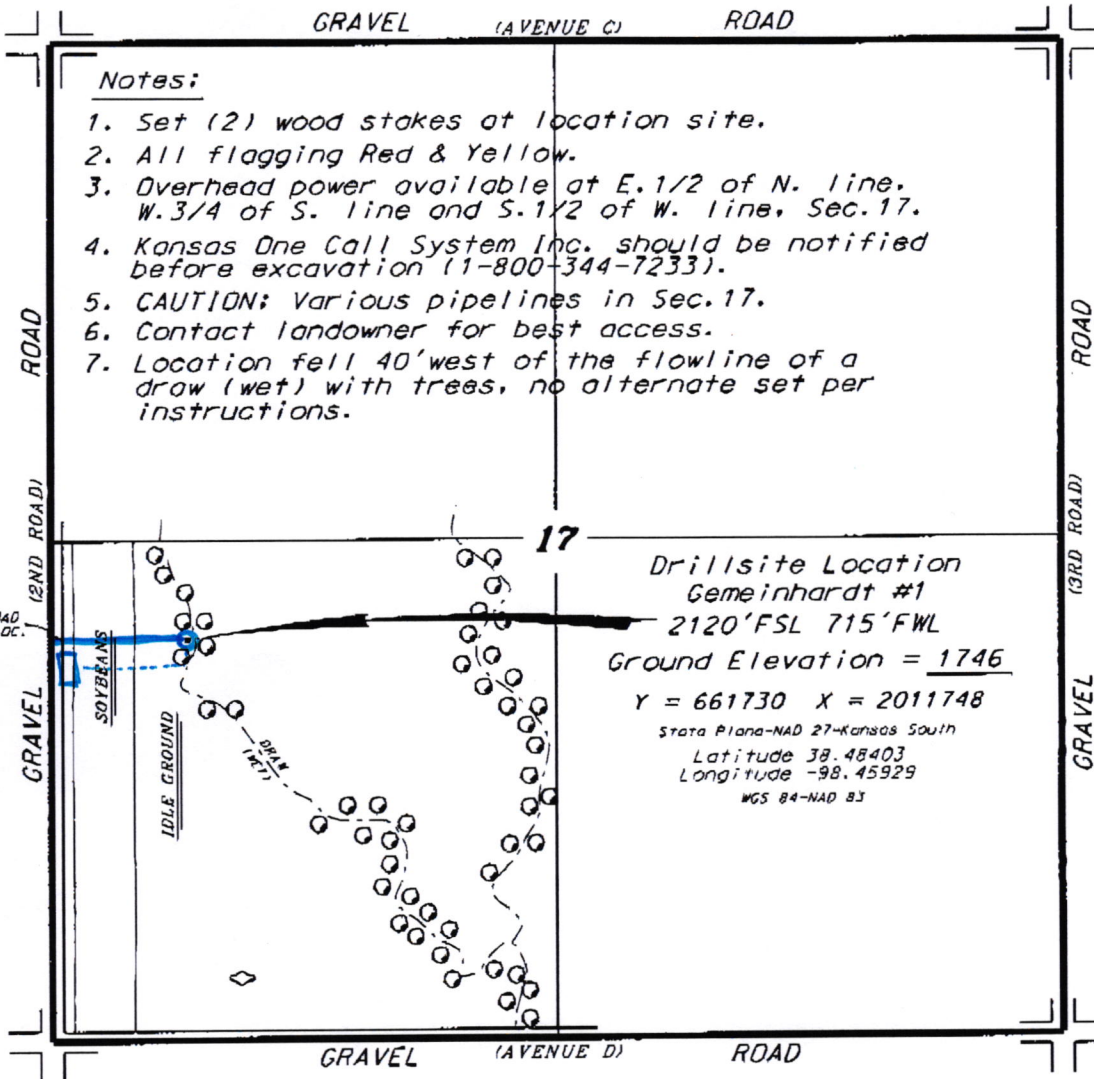 GRAVEL (AVENUE C) ROAD
Notes:
1. Set (2) wood stakes at location site.
2. All flagging Red & Yellow.
3. Overhead power available at E.1/2 of N. line,
W.3/4 of S. line and S.1/2 of W. line, Sec.17.
4. Kansas One Call System Inc. should be notified
before excavation (1-800-344-7233).
5. CAUTION: Various pipelines in Sec.17.
6. Contact landowner for best access.
7. Location fell 40'west of the flowline of a
draw (wet) with trees, no alternate set per
instructions.
ROAD
(2ND ROAD)
GRAVEL
ROAD
(3RD ROAD)
GRAVEL
17
Drillsite Location
Gemeinhardt #1
2120'FSL 715'FWL
Ground Elevation = 1746
Y = 661730 X = 2011748
State Plane-NAD 27-Kansas South
Latitude 38.48403
Longitude -98.45929
WGS 84-NAD 83
SOYBEANS
IDLE GROUND
DRAW
(WET)
GRAVEL (AVENUE D) ROAD